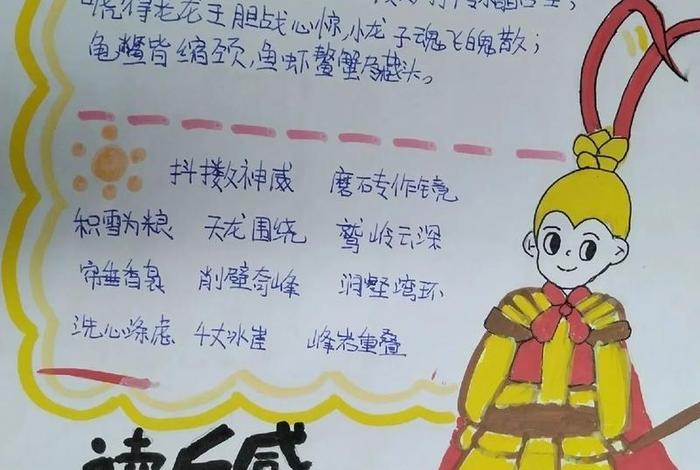 唬得老龙王胆战心惊,小龙子魂飞魄散;
龟鳖皆缩颈,鱼虾鳌蟹尽藏头。
抖擞神威 磨砖作镜
积雪为粮 天龙围绕 鹫岭云深
帘垂香袅 削壁奇峰 涧壑湾环
洗心涤虑 千丈冰崖 峰岩重叠
读后感